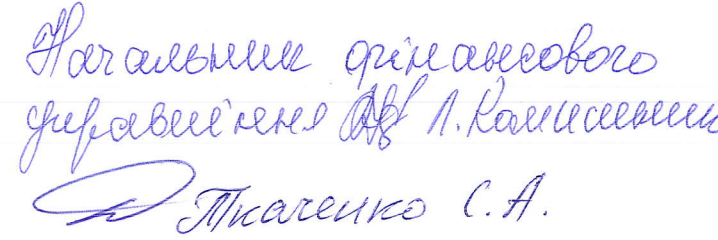 Начальник фінансового
управління Л. Комишник
Ткаченко С.А.